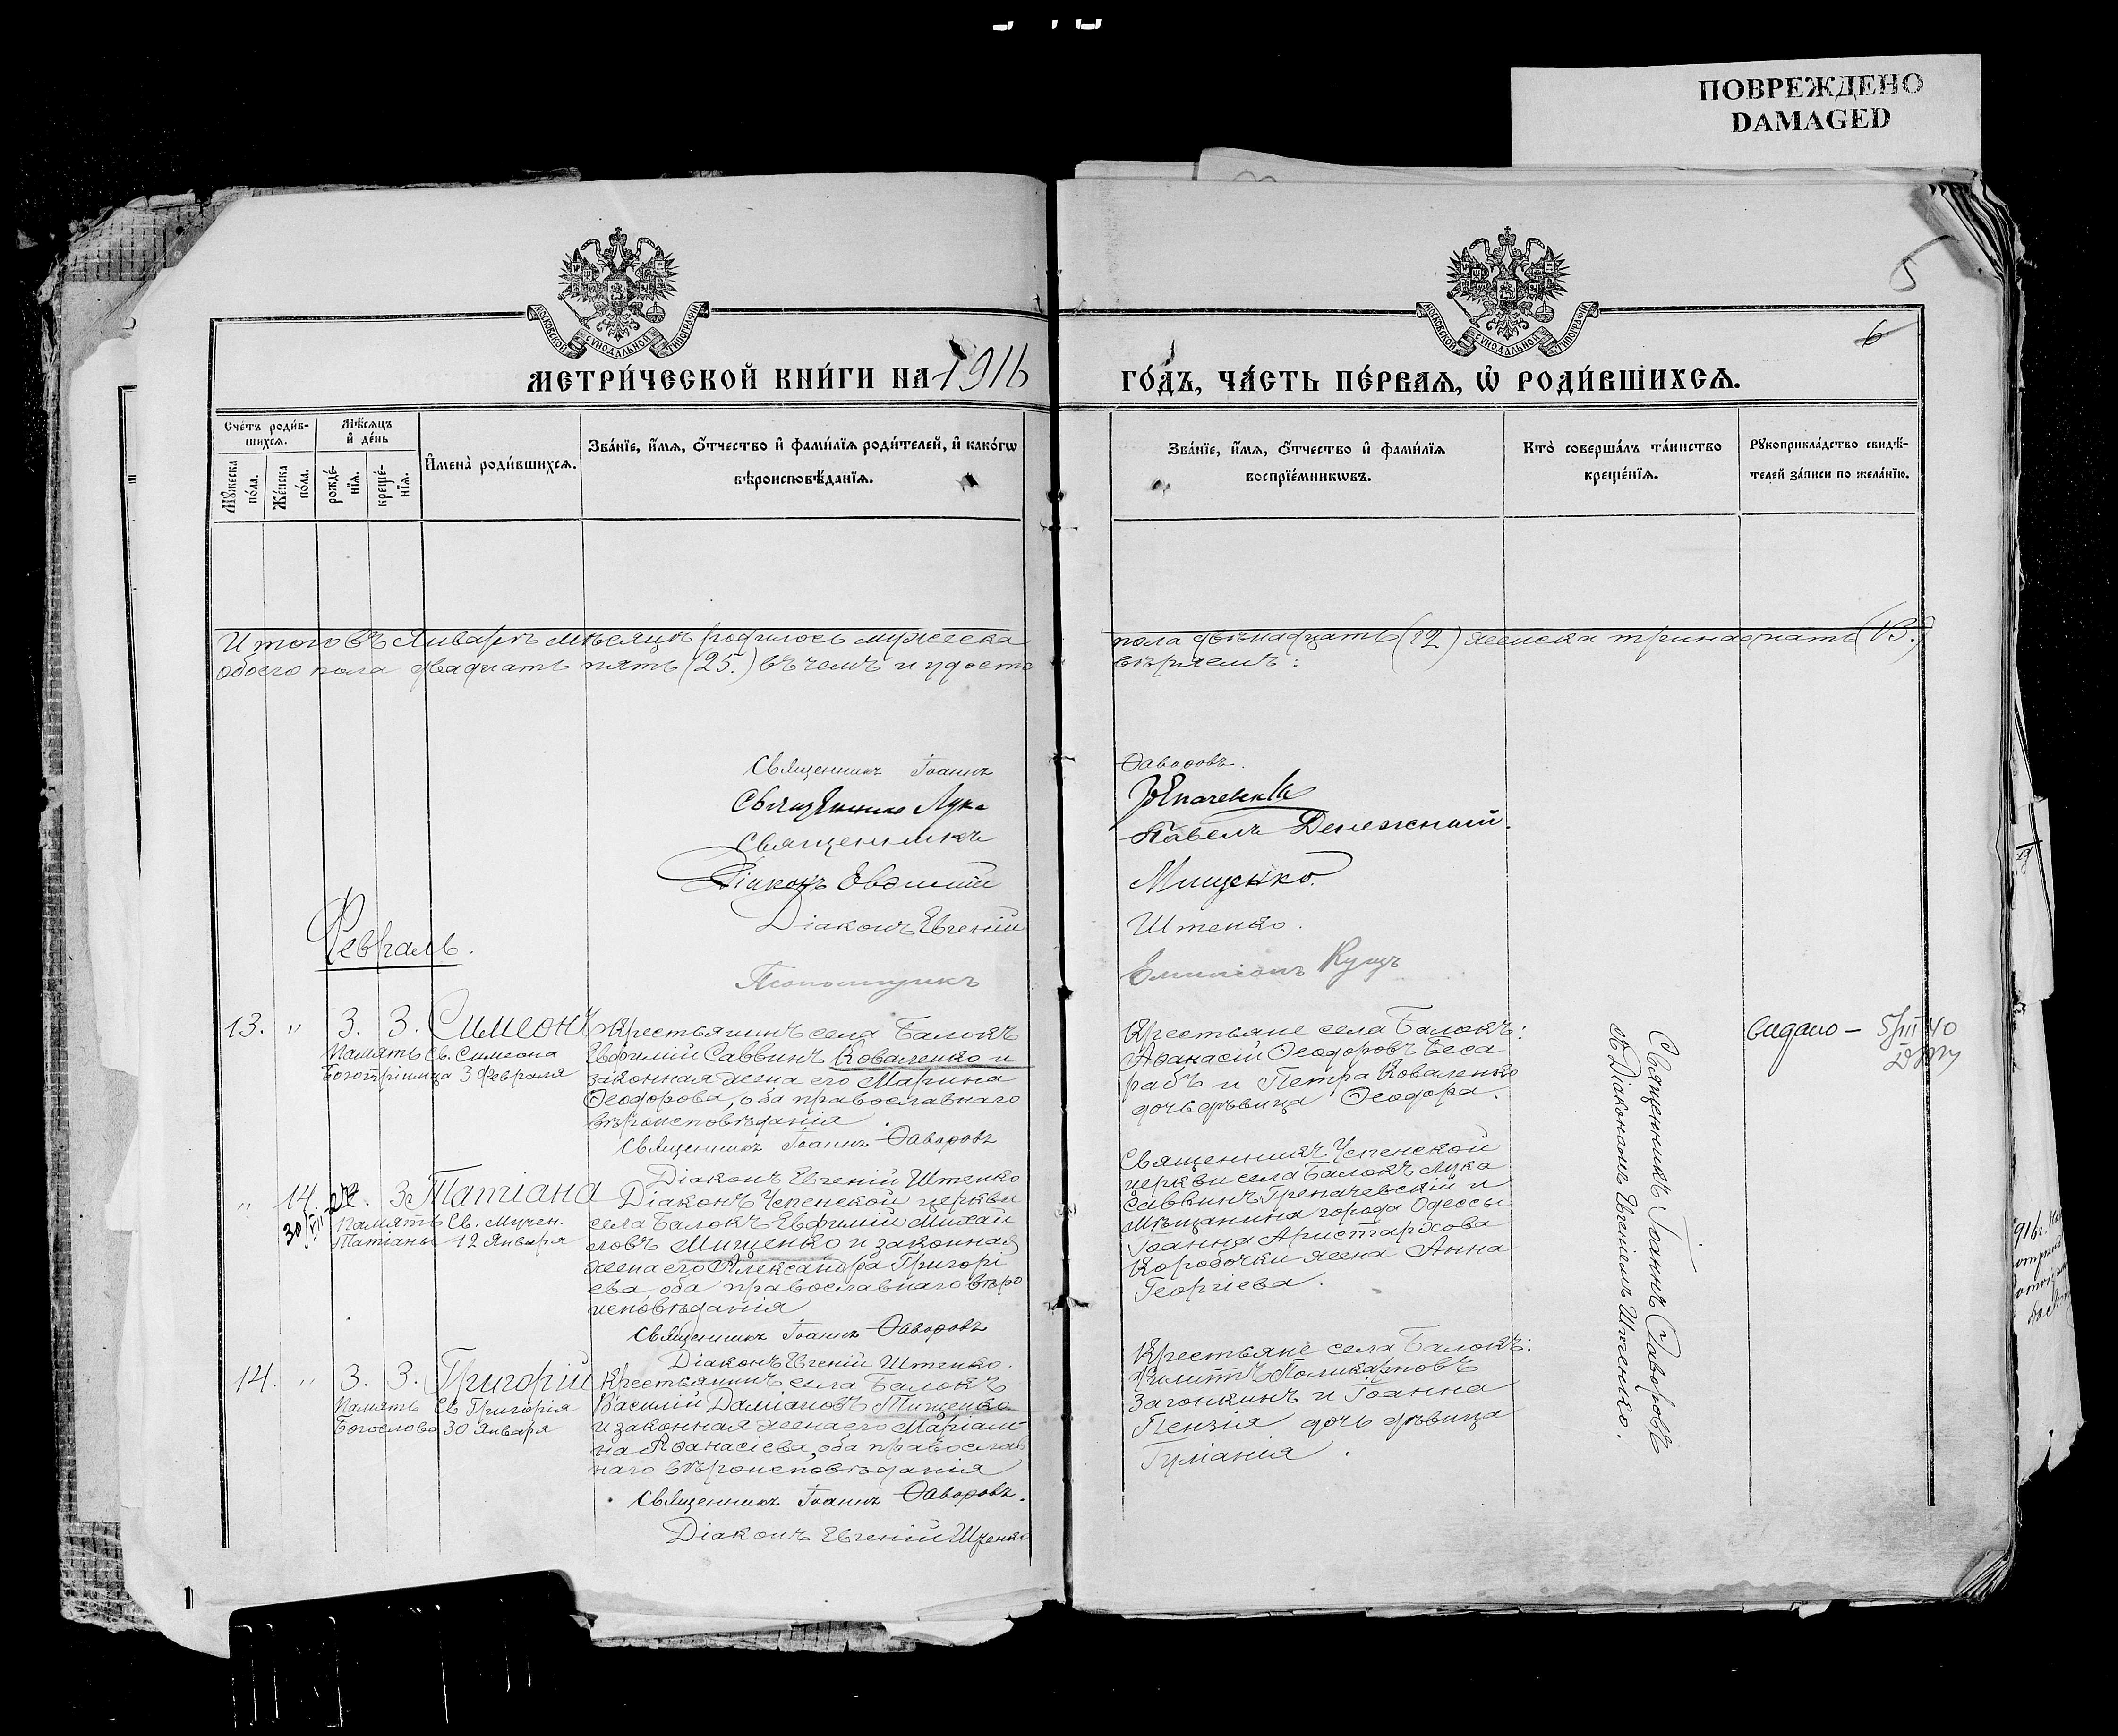 ПОВРЕЖДЕНО
DAMAGED
5
6
МОСКОВСКОЙ СѴНОДАЛЬНОЙ ТИПОГРАФІИ
МОСКОВСКОЙ СѴНОДАЛЬНОЙ ТИПОГРАФІИ
МЕТРИ́ЧЕСКОЙ КНИ́ГИ НА 1916
ГО́ДЪ, ЧА́СТЬ ПЕ́РВАЯ, Ѡ҆ РОДИ́ВШИХСЯ.
Сче́тъ роди́в-
шихся.
Мѣ́сяцъ
и҆ де́нь
Мꙋ́жеска
по́ла.
Же́нска
по́ла.
рожде́-
нїя.
креще́-
нїя.
И҆мена̀ роди́вшихся.
Зва́нїе, и҆́мя, ѻ҆́тчество и҆ фами́лїя роди́телей, и҆ како́гѡ
вѣроисповѣ́данїя.
Зва́нїе, и҆́мя, ѻ҆́тчество и҆ фами́лїя
воспрїе́мникѡвъ.
Кто̀ соверша́лъ та́инство
креще́нїя.
Рꙋкоприкла́дство свидѣ́-
телей за́писи по жела́нїю.
Итого въ Январѣ мѣсяцѣ родилось мужеска
пола двѣнадцать (12) женска тринадцать (13.)
обоего пола двадцать пять (25.) въ чемъ и удосто
вѣряемъ:
Священникъ Іоаннъ Ѳаворовъ.
Священникъ Лука
Священникъ Павелъ Денежный.
Діаконъ Евѳимій Мищенко.
Діаконъ Евгеній Штенко.
Псаломщикъ Емиліанъ Кущъ
Февраль.
13. " 3. 3. Симеонъ
Память Св. Симеона
Богопріимца 3 Февраля
Крестьянинъ села Балокъ
Евѳимій Саввинъ Коваленко и
законная жена его Марина
Ѳеодорова, оба православнаго
вѣроисповѣданія.
Священникъ Іоаннъ Ѳаворовъ
Діаконъ Евгеній Штенко
Крестьяне села Балокъ:
Аѳанасій Ѳеодоровъ Беса
рабъ и Петра Коваленко
дочь дѣвица Ѳеодора.
Священникъ Іоаннъ Ѳаворовъ
съ Діакономъ Евгеніемъ Штенко.
Видано – 5/III 40
" 14. 3. Татіана
30/VII
Память Св. Мучен.
Татіаны 12 Января
Діаконъ Успенской церкви
села Балокъ Евѳимій Михаи
ловъ Мищенко и законная
жена его Александра Григорі
ева, оба православнаго вѣро
исповѣданія
Священникъ Іоаннъ Ѳаворовъ
Діаконъ Евгеній Штенко.
Священникъ Успенской
церкви села Балокъ Лука
Саввинъ Грепачевскій и
Мѣщанина города Одессы
Іоанна Аристархова
Коробочки жена Анна
Георгіева.
14. " 3. 3. Григорій
Память Св Григорія
Богослова 30 Января
Крестьянинъ села Балокъ
Василій Даміановъ Тищенко
и законная жена его Маріам-
на Аѳанасіева, оба православ
наго вѣроисповѣданія
Священникъ Іоаннъ Ѳаворовъ.
Діаконъ Евгеній Штенко
Крестьяне села Балокъ:
Филиппъ Поликарповъ
Загонкинъ и Іоанна
Пензія дочь дѣвица
Гуліанія.